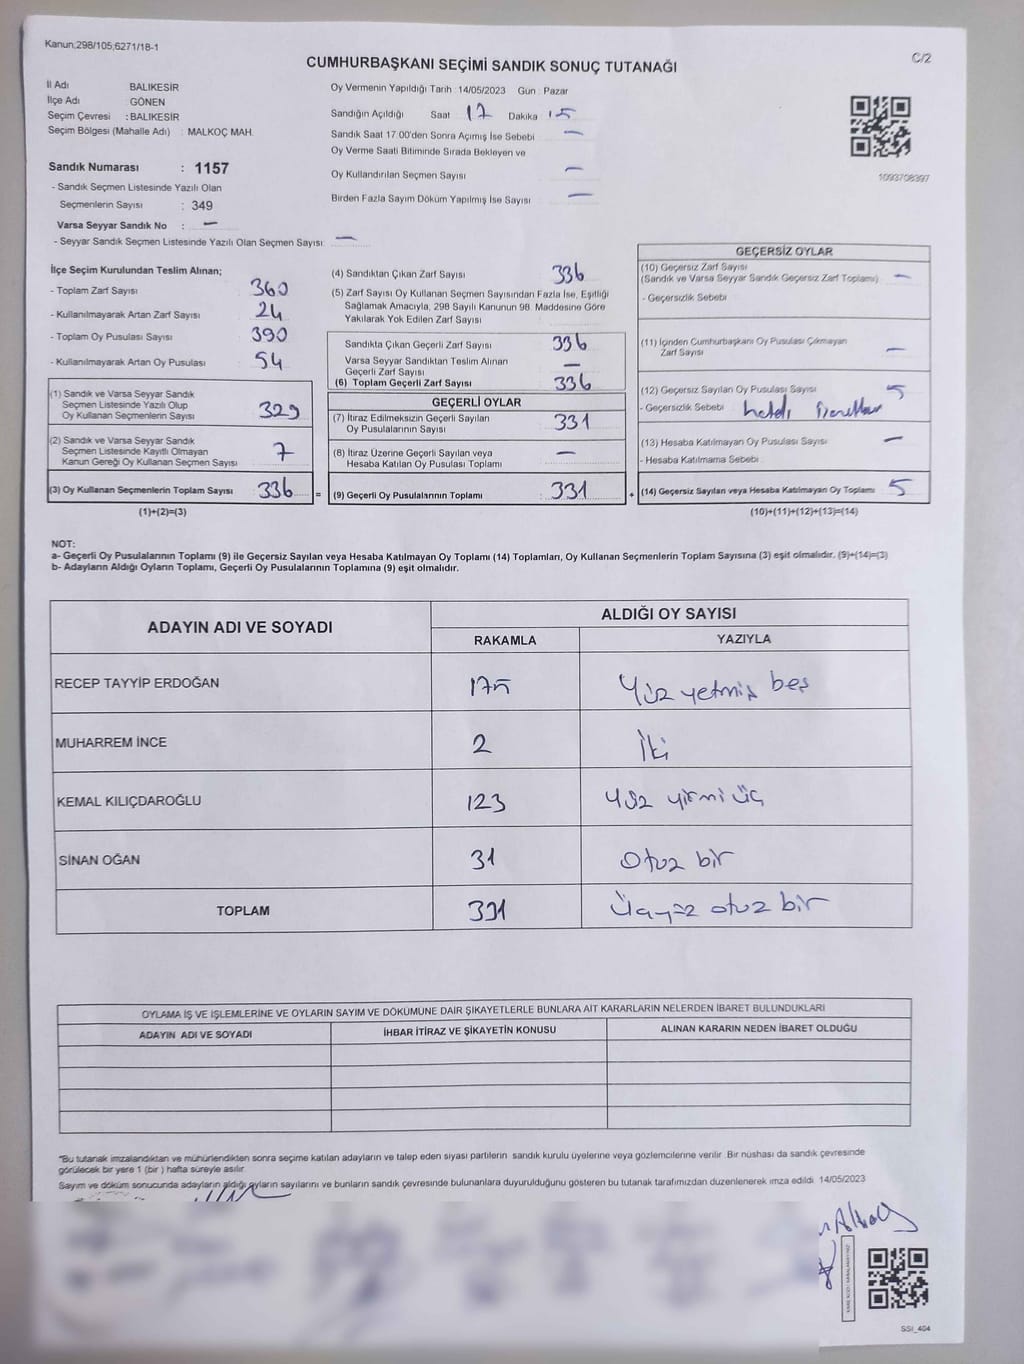 Kanun;298/105;6271/18-1
CUMHURBAŞKANI SEÇİMİ SANDIK SONUÇ TUTANAĞI
C/2
İl Adı BALIKESİR
İlçe Adı GÖNEN
Seçim Çevresi : BALIKESİR
Seçim Bölgesi (Mahalle Adı) : MALKOÇ MAH.
Sandık Numarası : 1157
- Sandık Seçmen Listesinde Yazılı Olan
Seçmenlerin Sayısı : 349
Varsa Seyyar Sandık No : —
- Seyyar Sandık Seçmen Listesinde Yazılı Olan Seçmen Sayısı: —
Oy Vermenin Yapıldığı Tarih : 14/05/2023 Gün : Pazar
Sandığın Açıldığı Saat 17 Dakika 15
Sandık Saat 17.00'den Sonra Açımış İse Sebebi —
Oy Verme Saati Bitiminde Sırada Bekleyen ve
Oy Kullandırılan Seçmen Sayısı —
Birden Fazla Sayım Döküm Yapılmış İse Sayısı —
1093708397
İlçe Seçim Kurulundan Teslim Alınan;
- Toplam Zarf Sayısı 360
- Kullanılmayarak Artan Zarf Sayısı 24
- Toplam Oy Pusulası Sayısı 390
- Kullanılmayarak Artan Oy Pusulası 54
(1) Sandık ve Varsa Seyyar Sandık
Seçmen Listesinde Yazılı Olup
Oy Kullanan Seçmenlerin Sayısı 329
(2) Sandık ve Varsa Seyyar Sandık
Seçmen Listesinde Kayıtlı Olmayan
Kanun Gereği Oy Kullanan Seçmen Sayısı 7
(3) Oy Kullanan Seçmenlerin Toplam Sayısı 336 =
(1)+(2)=(3)
(4) Sandıktan Çıkan Zarf Sayısı 336
(5) Zarf Sayısı Oy Kullanan Seçmen Sayısından Fazla İse, Eşitliği
Sağlamak Amacıyla, 298 Sayılı Kanunun 98. Maddesine Göre
Yakılarak Yok Edilen Zarf Sayısı
Sandıkta Çıkan Geçerli Zarf Sayısı 336
Varsa Seyyar Sandıktan Teslim Alınan
Geçerli Zarf Sayısı —
(6) Toplam Geçerli Zarf Sayısı 336
GEÇERLİ OYLAR
(7) İtiraz Edilmeksizin Geçerli Sayılan
Oy Pusulalarının Sayısı 331
(8) İtiraz Üzerine Geçerli Sayılan veya
Hesaba Katılan Oy Pusulası Toplamı —
(9) Geçerli Oy Pusulalarının Toplamı : 331 +
GEÇERSİZ OYLAR
(10) Geçersiz Zarf Sayısı
(Sandık ve Varsa Seyyar Sandık Geçersiz Zarf Toplamı) —
- Geçersizlik Sebebi
(11) İçinden Cumhurbaşkanı Oy Pusulası Çıkmayan
Zarf Sayısı —
(12) Geçersiz Sayılan Oy Pusulası Sayısı 5
- Geçersizlik Sebebi hatalı
(13) Hesaba Katılmayan Oy Pusulası Sayısı —
- Hesaba Katılmama Sebebi
(14) Geçersiz Sayılan veya Hesaba Katılmayan Oy Toplamı 5
(10)+(11)+(12)+(13)=(14)
NOT:
a- Geçerli Oy Pusulalarının Toplamı (9) ile Geçersiz Sayılan veya Hesaba Katılmayan Oy Toplamı (14) Toplamları, Oy Kullanan Seçmenlerin Toplam Sayısına (3) eşit olmalıdır. (9)+(14)=(3)
b- Adayların Aldığı Oyların Toplamı, Geçerli Oy Pusulalarının Toplamına (9) eşit olmalıdır.
ADAYIN ADI VE SOYADI ALDIĞI OY SAYISI
RAKAMLA YAZIYLA
RECEP TAYYİP ERDOĞAN 175 Yüz yetmiş beş
MUHARREM İNCE 2 İki
KEMAL KILIÇDAROĞLU 123 Yüz yirmi üç
SİNAN OĞAN 31 Otuz bir
TOPLAM 331 Üçyüz otuz bir
OYLAMA İŞ VE İŞLEMLERİNE VE OYLARIN SAYIM VE DÖKÜMÜNE DAİR ŞİKAYETLERLE BUNLARA AİT KARARLARIN NELERDEN İBARET BULUNDUKLARI
ADAYIN ADI VE SOYADI İHBAR İTİRAZ VE ŞİKAYETİN KONUSU ALINAN KARARIN NEDEN İBARET OLDUĞU
"Bu tutanak imzalandıktan ve mühürlendikten sonra seçime katılan adayların ve talep eden siyasi partilerin sandık kurulu üyelerine veya gözlemcilerine verilir. Bir nüshası da sandık çevresinde
görülecek bir yere 1 (bir ) hafta süreyle asılır.
Sayım ve döküm sonucunda adayların aldığı oyların sayılarını ve bunların sandık çevresinde bulunanlara duyurulduğunu gösteren bu tutanak tarafımızdan düzenlenerek imza edildi. 14/05/2023
SSI_404